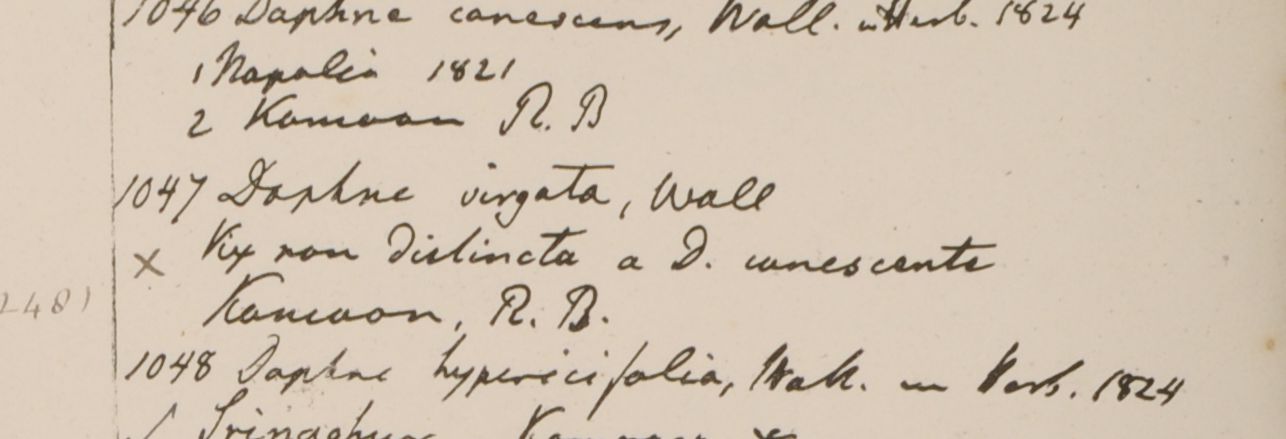 1046 Daphne canescens, Wall. in Herb. 1824
1 Napalia 1821
2 Kamaon R. B
1047 Daphne virgata, Wall
x Vix non distincta a D. canescente
2481
Kamaon, R. B.
1048 Daphne hypericifolia, Wall. in Herb. 1824